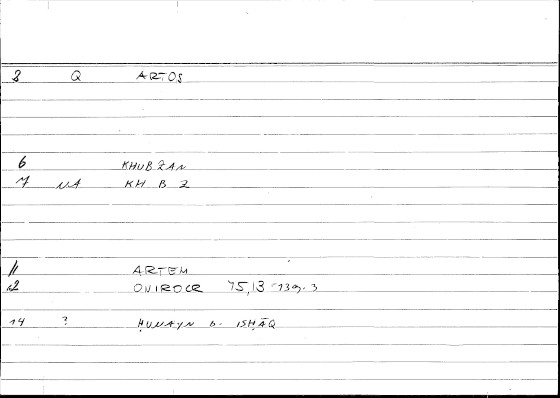 3 Q ARTOS
6 KHUBZAN
7 NA KH B Z
11 ARTEM
12 ONIROCR 75,13
14 ? ḤUNAYN b. ISḤĀQ